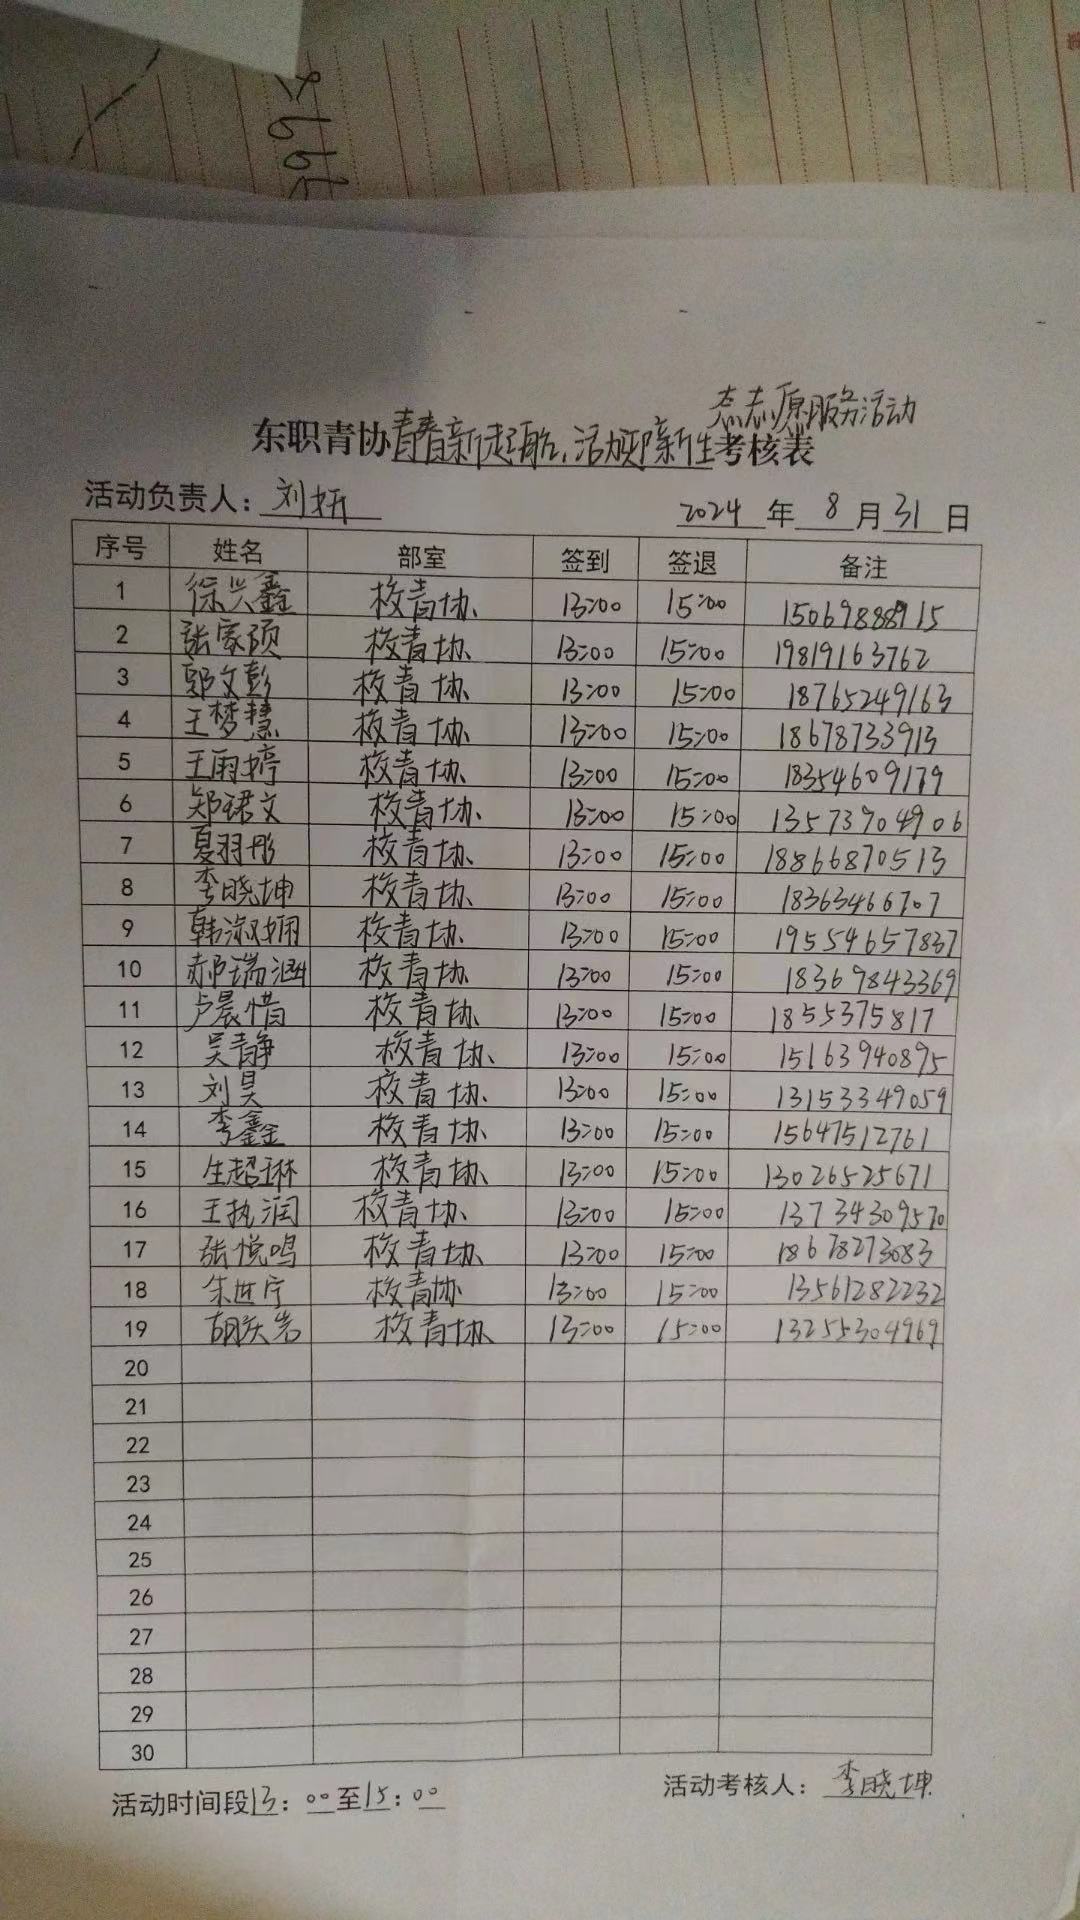 志愿服务活动
东职青协青春新起航,活力迎新生考核表
活动负责人:刘妍 2024年8月31日
序号 姓名 部室 签到 签退 备注
1 徐兴鑫 校青协 13:00 15:00 15069888915
2 张家硕 校青协 13:00 15:00 19819163762
3 郭文彭 校青协 13:00 15:00 18765249163
4 王梦慧 校青协 13:00 15:00 18678733913
5 王雨婷 校青协 13:00 15:00 18354609179
6 郑珺文 校青协 13:00 15:00 13573904906
7 夏羽彤 校青协 13:00 15:00 18866870513
8 李晓坤 校青协 13:00 15:00 18363466707
9 韩淑娴 校青协 13:00 15:00 19554657837
10 郝瑞涵 校青协 13:00 15:00 18369843369
11 卢晨惜 校青协 13:00 15:00 1855375817
12 吴静 校青协 13:00 15:00 15163940895
13 刘昊 校青协 13:00 15:00 13153349059
14 李鑫 校青协 13:00 15:00 15647512761
15 生超琳 校青协 13:00 15:00 13026525671
16 王执润 校青协 13:00 15:00 13734309570
17 张悦鸣 校青协 13:00 15:00 18678273083
18 朱世宁 校青协 13:00 15:00 13561282232
19 胡庆岩 校青协 13:00 15:00 13255304969
20
21
22
23
24
25
26
27
28
29
30
活动时间段13:00至15:00 活动考核人:李晓坤